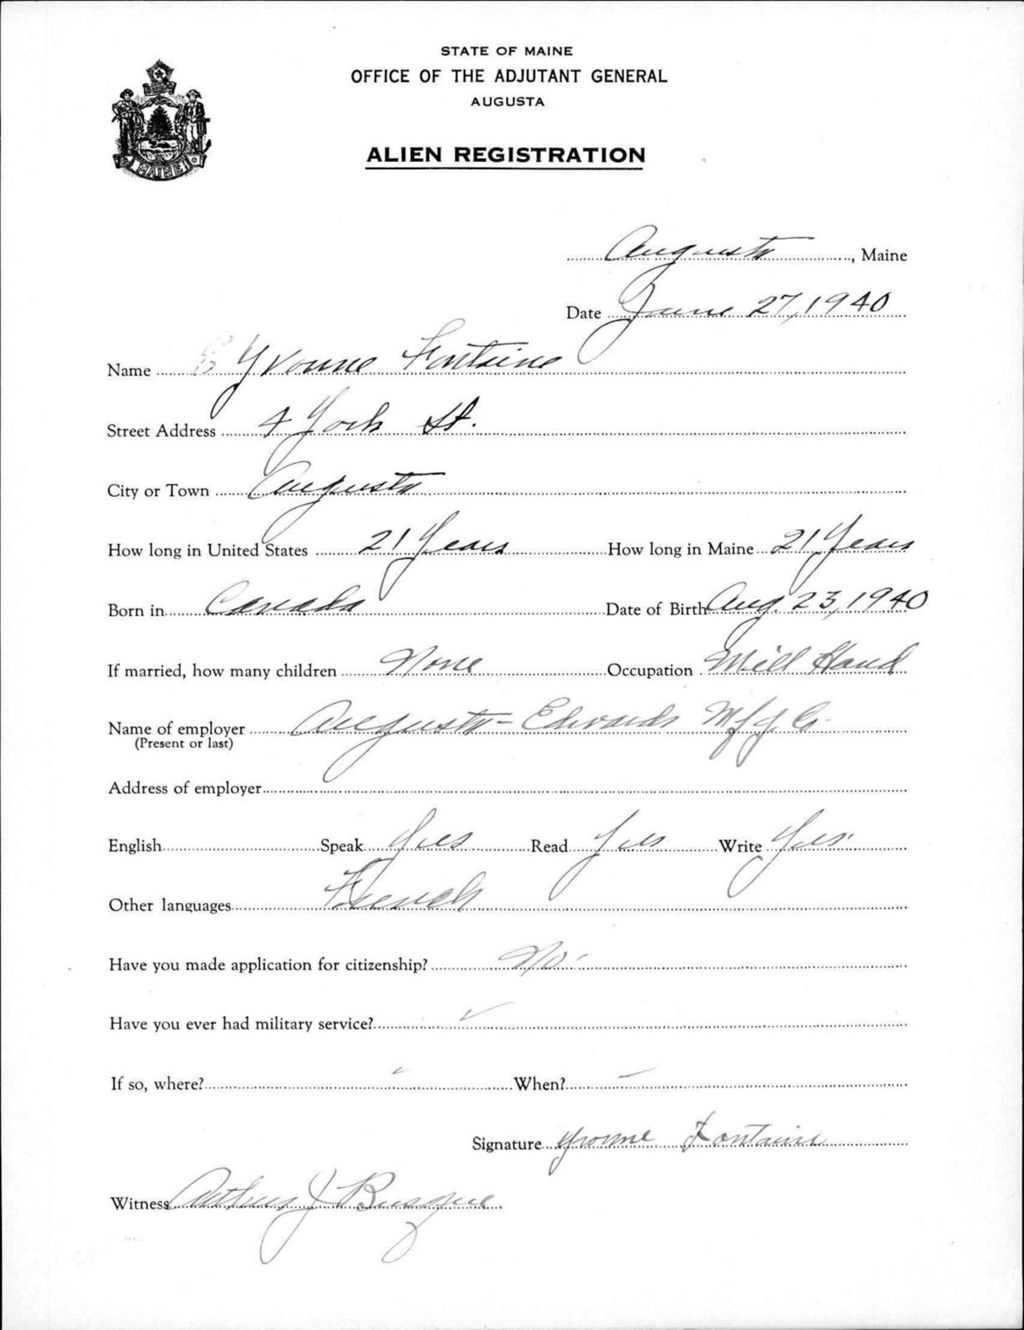 STATE OF MAINE
OFFICE OF THE ADJUTANT GENERAL
AUGUSTA
ALIEN REGISTRATION
MAINE
Augusta, Maine
Date June 27, 1940
Name Yvonne Fontaine
Street Address 4 York St.
City or Town Augusta
How long in United States 21 Years How long in Maine 21 Years
Born in Canada Date of Birth Aug 23, 1940
If married, how many children None Occupation Mill Hand
Name of employer Augusta - Edwards Mfg Co.
(Present or last)
Address of employer
English Speak Yes Read Yes Write Yes
Other languages French
Have you made application for citizenship? No
Have you ever had military service?
If so, where? When?
Signature Yvonne Fontaine
Witness Arthur J Busque